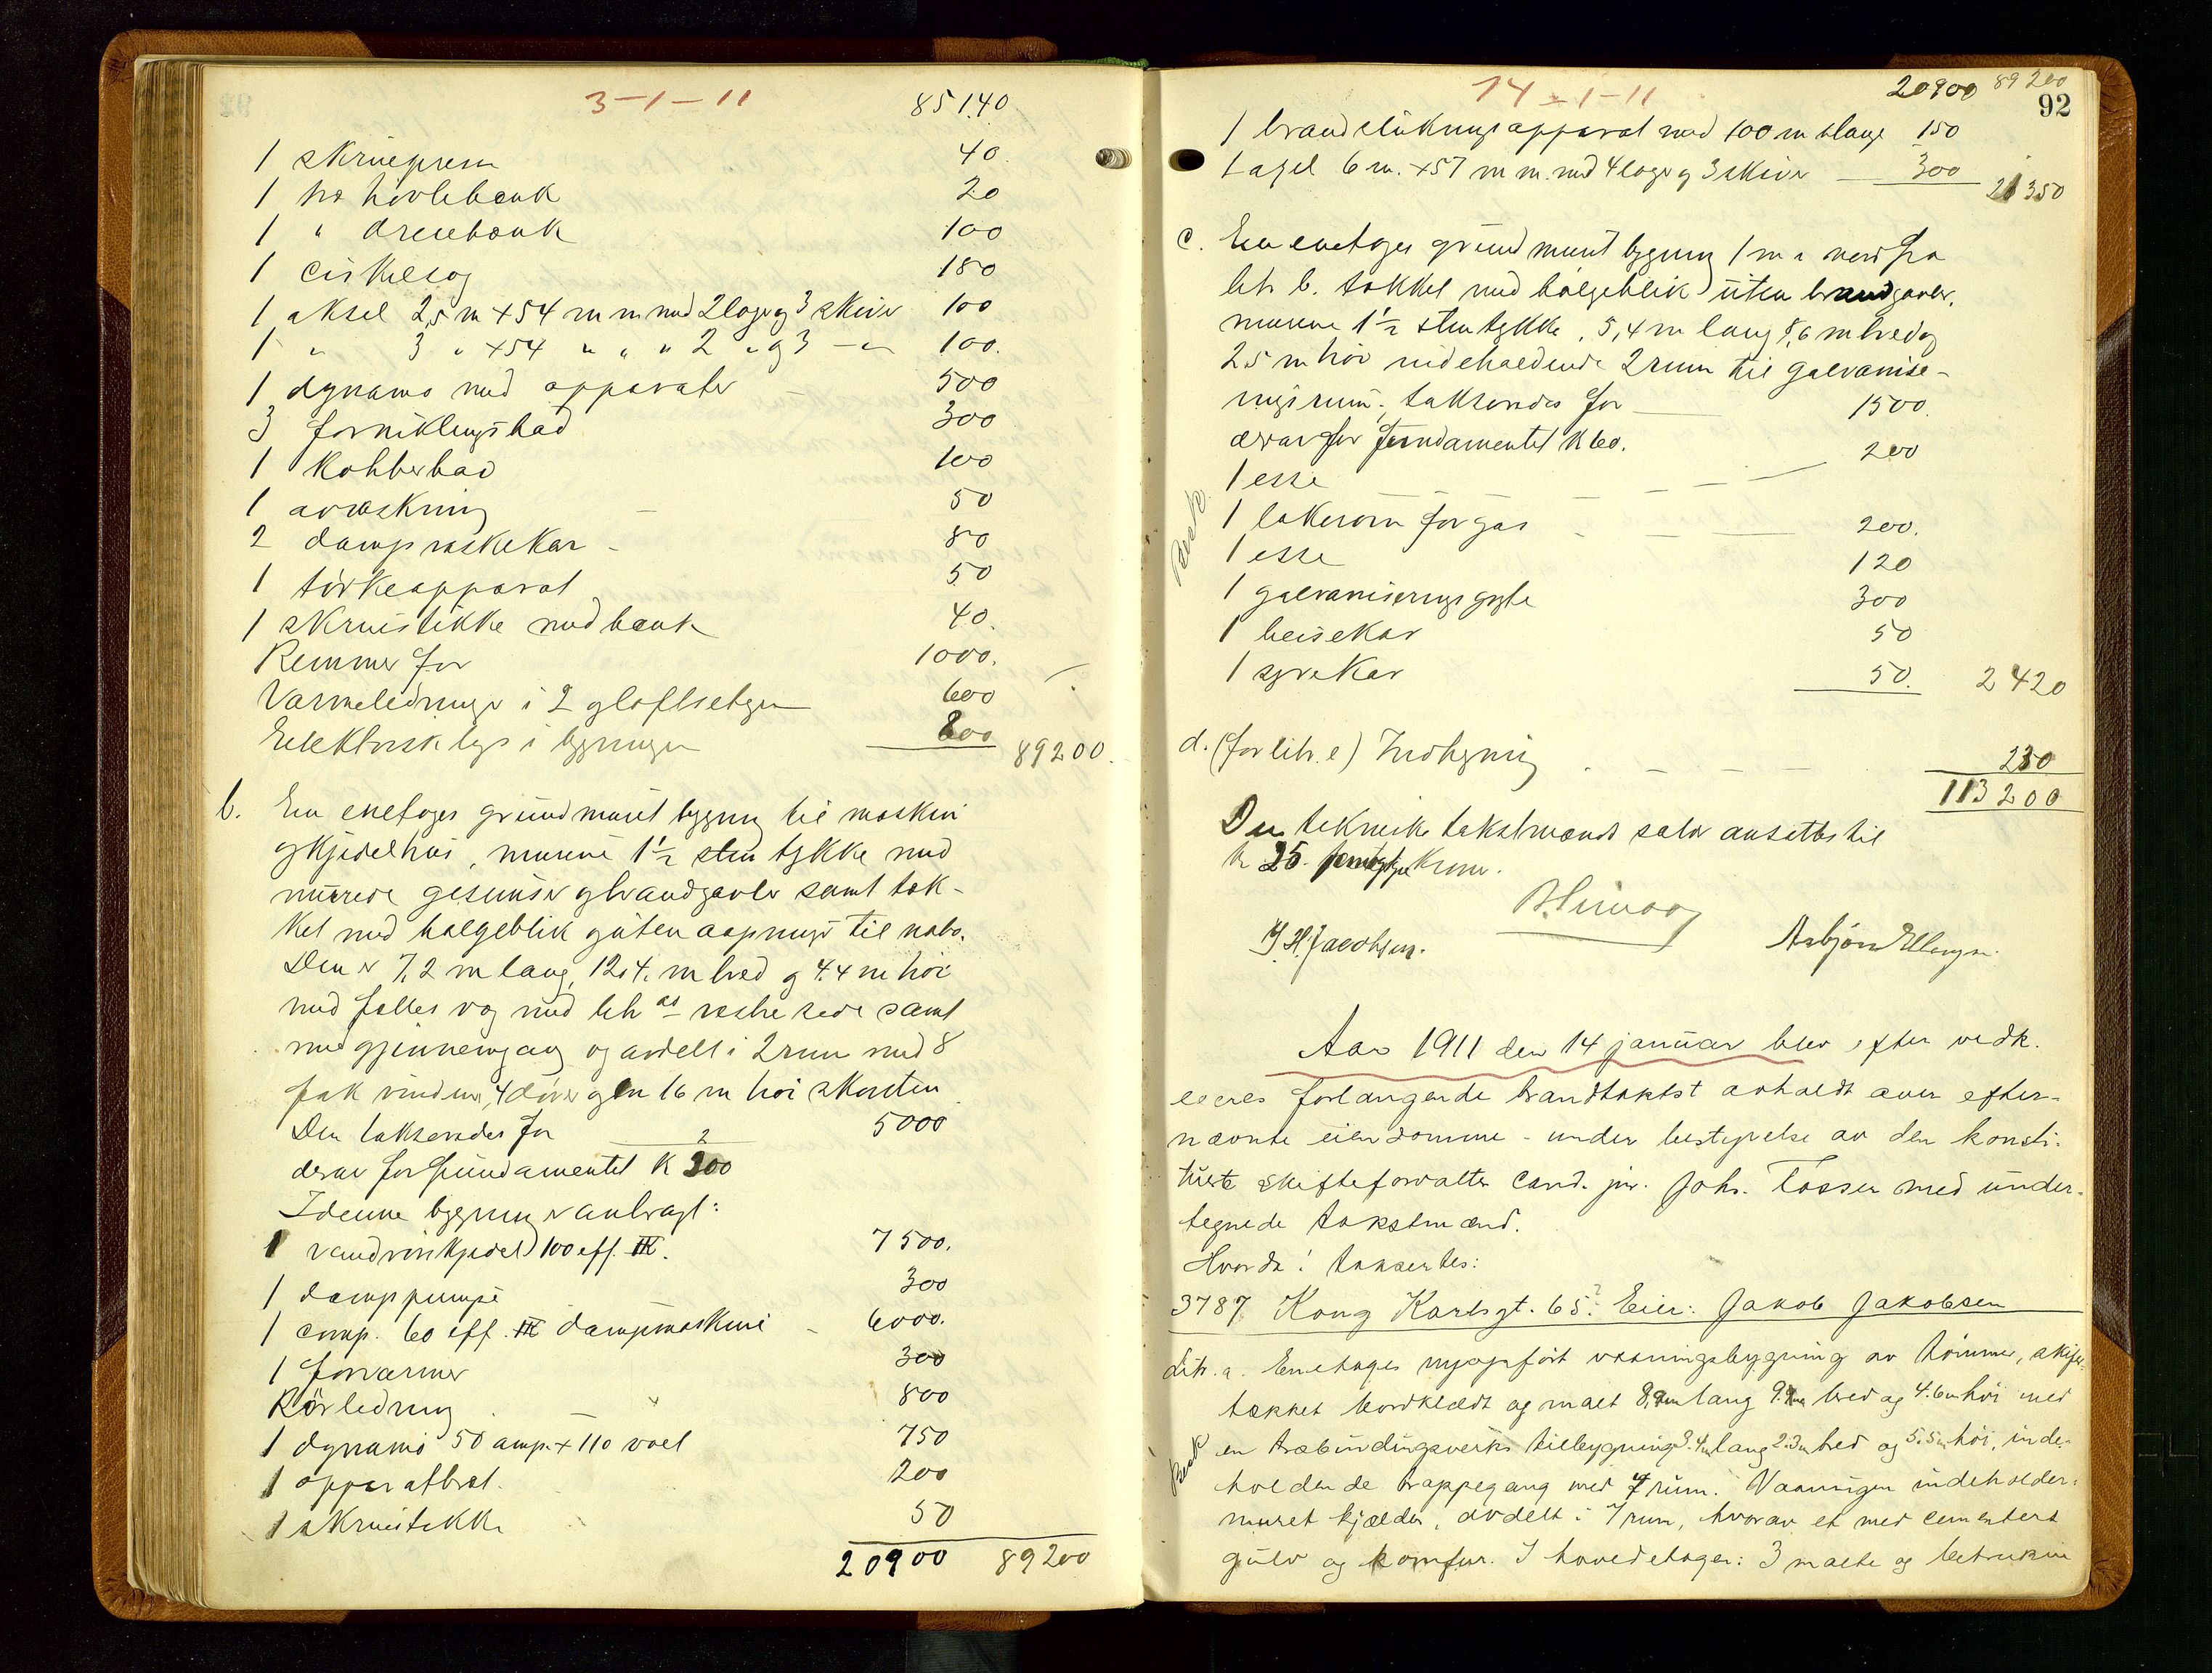 3-1-11
85140
1 skruepresse 40.
1 træ hövlebænk 20
1 " dreiebænk 100
1 cirkelsag 180
1 aksel 2,5 m × 54 m m med 2 lager og 3 skiver 100
1 " 3 " × 54 " " " 2 " og 3 — " 100.
1 dynamo med apparater 500
3 forniklingsbad 300
1 Kobberbad 100
1 avvaskning 50
2 dampvaskekar 80
1 törkeapparat 50
1 skruestikke med bænk 40.
Remmer for 1000.
Varmeledninger i 2 etager 600
Elektrisk lys i bygningen 800 89200.
b. En enetages grundmuret bygning til maskin
og kjedelhus, murene 1 1/2 sten tykke med
murede gesimser og brandgavler samt tæk-
ket med bølgeblik og uten aapninger til nabo.
Den er 7,2 m lang, 12,4 m bred og 4.4 m höi
med fælles væg med litr as vestre side samt
med gjennemgang og avdelt i 2 rum med 8
fak vinduer, 4 dörer og en 16 m höi skorsten
Den takseredes for 5000
derav for fundamentet K 200
I denne bygning er anbragt:
1 vandrörskjedel 100 eff. HK. 7500.
1 damppumpe 300
1 comp. 60 eff. HK dampmaskine 6000.
1 forvarmer 300
Rörledning 800
1 dynamo 50 amp. × 110 volt 750
1 apparatbræt. 200
1 skruestikke 50
20900 89200
14-1-11
20900 89200
92
1 brandslukningsapparat med 100 m slange 150
1 axel 6 m. × 57 m m. med 4 lager og 3 skiver 300 21350
c. En enetages grundmuret bygning 1 m " nord fra
litr b. tækket med bølgeblik uten brandgavler,
murene 1 1/2 sten tykke, 5,4 m lang 5,6 m bred og
2.5 m höi indeholdende 2 rum til galvanise-
ringsrum. takseredes for 1500.
derav for fundamentet K 60.
1 esse 200
Besk.
1 lakerovn for gas 200.
1 esse 120
1 galvaniseringsgryte 300
1 beisekar 50
1 syrekar 50. 2420
d. (for litr. e) Indhegning 230
113200
Den tekniske takstmands salær ansættes til
kr 25. Kroner.
J. H. Jacobsen. Asbjörn Ellingsen.
Aar 1911 den 14 januar blev efter vedk.
eieres forlangende brandtakst avholdt over efter-
nævnte eiendomme - under bestyrelse av den konsti-
tuerte skifteforvalter cand. jur. Johs. Tossen med under-
tegnede takstmænd.
Hvorda: taksertes:
3787 Kong Karlsgt. 65? Eier: Jakob Jakobsen
Litr. a. Enetages nyopfört vaaningsbygning av tömmer, skifer-
tækket bordklædt og malt 8,9m lang 9.9m bred og 4.6m höi med
Besk
en træbindingsverks tilbygning 3.4m lang 2.3m bred og 5.5m höi, inde-
holdende trappegang med 4 rum. Vaaningen indeholder:
muret kjælder, avdelt i 7 rum, hvorav et med cementert
gulv og komfur. I hovedetagen: 3 malte og betrukne